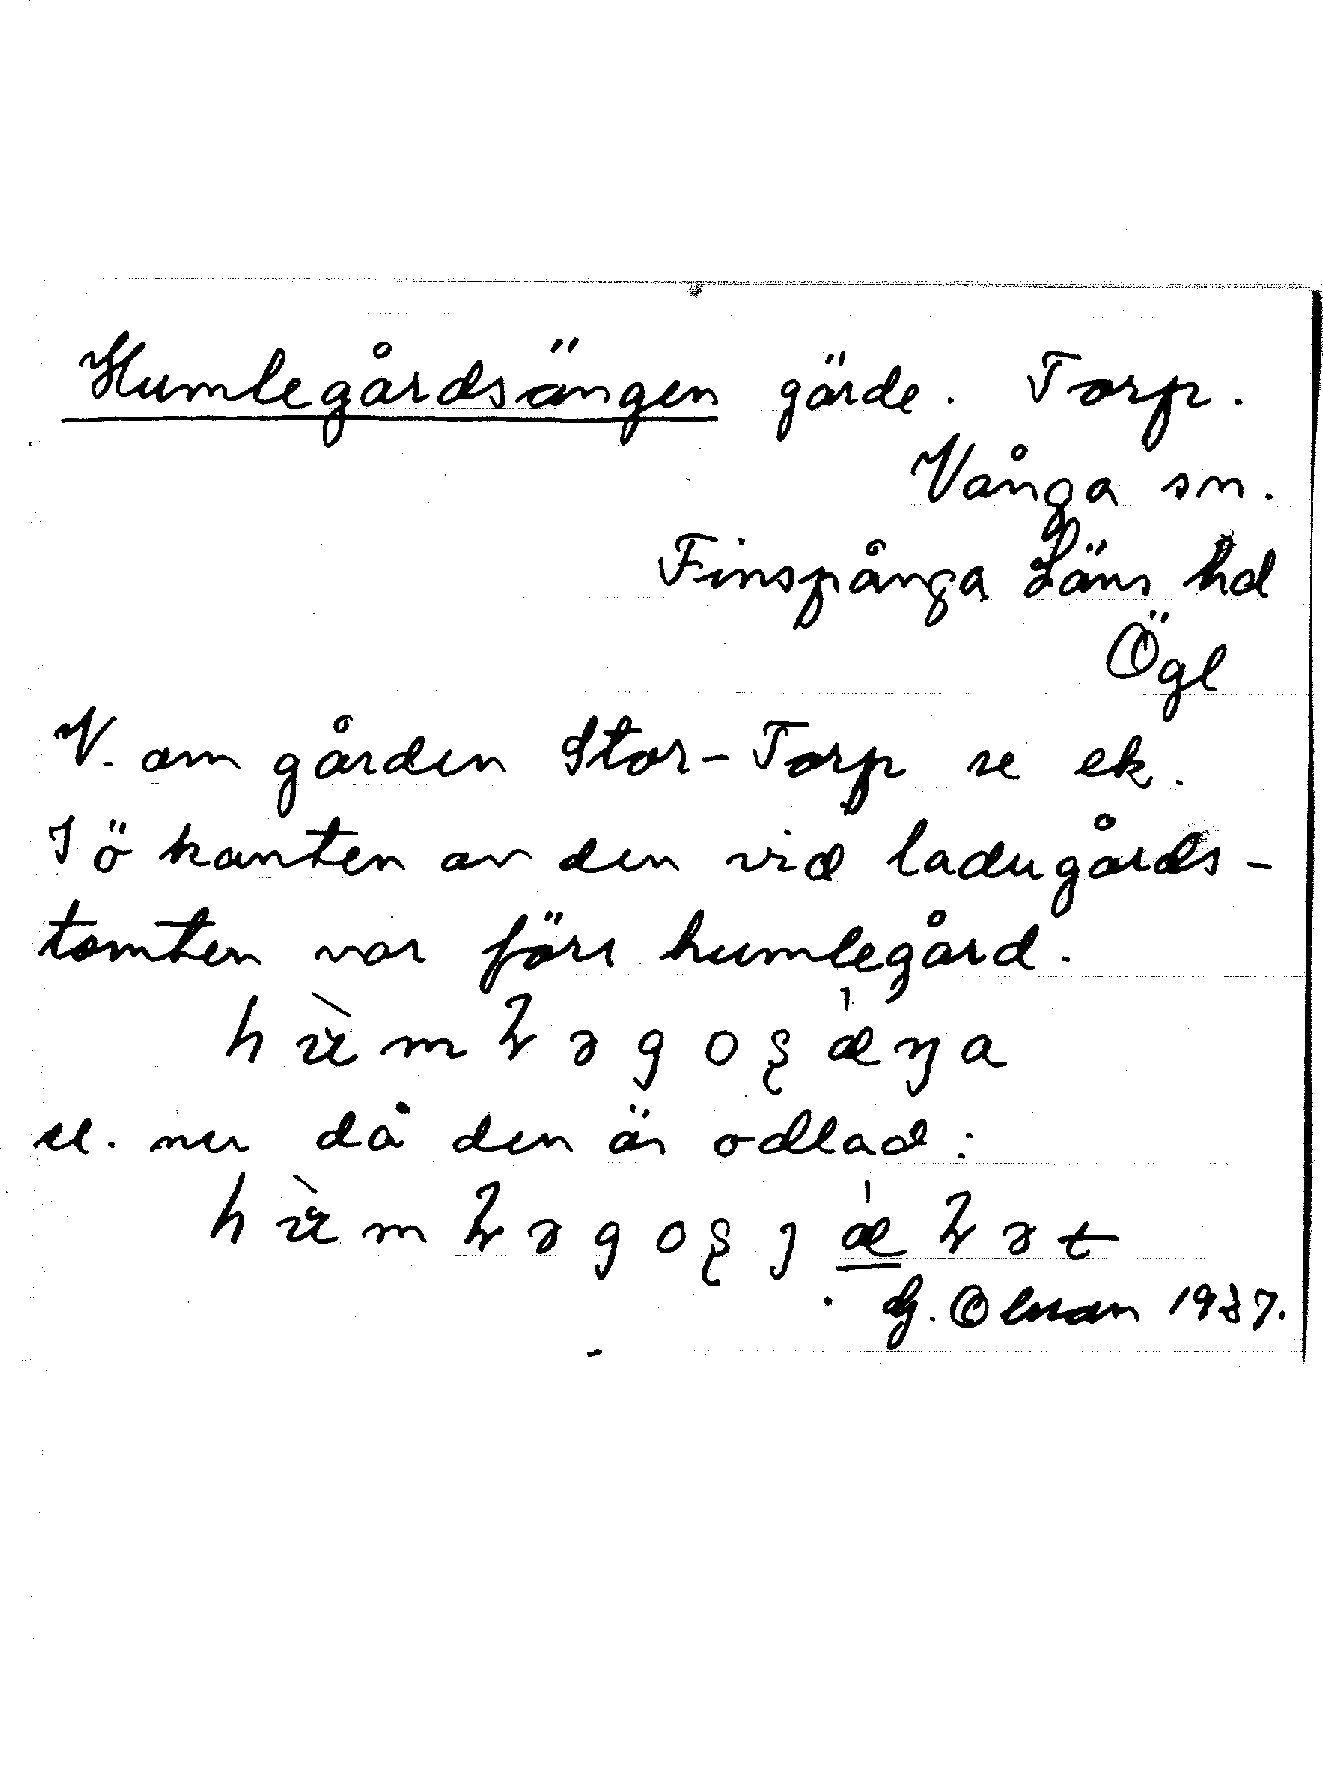 Humlegårdsängen gärde. Torp.
Vånga sn.
Finspånga Läns hd
Ögl
V. om gården Stor-Torp se ek.
I ö kanten av den vid ladugårds-
tomten var förr humlegård.
el. nu då den är odlad:
G. Olsson 1937.